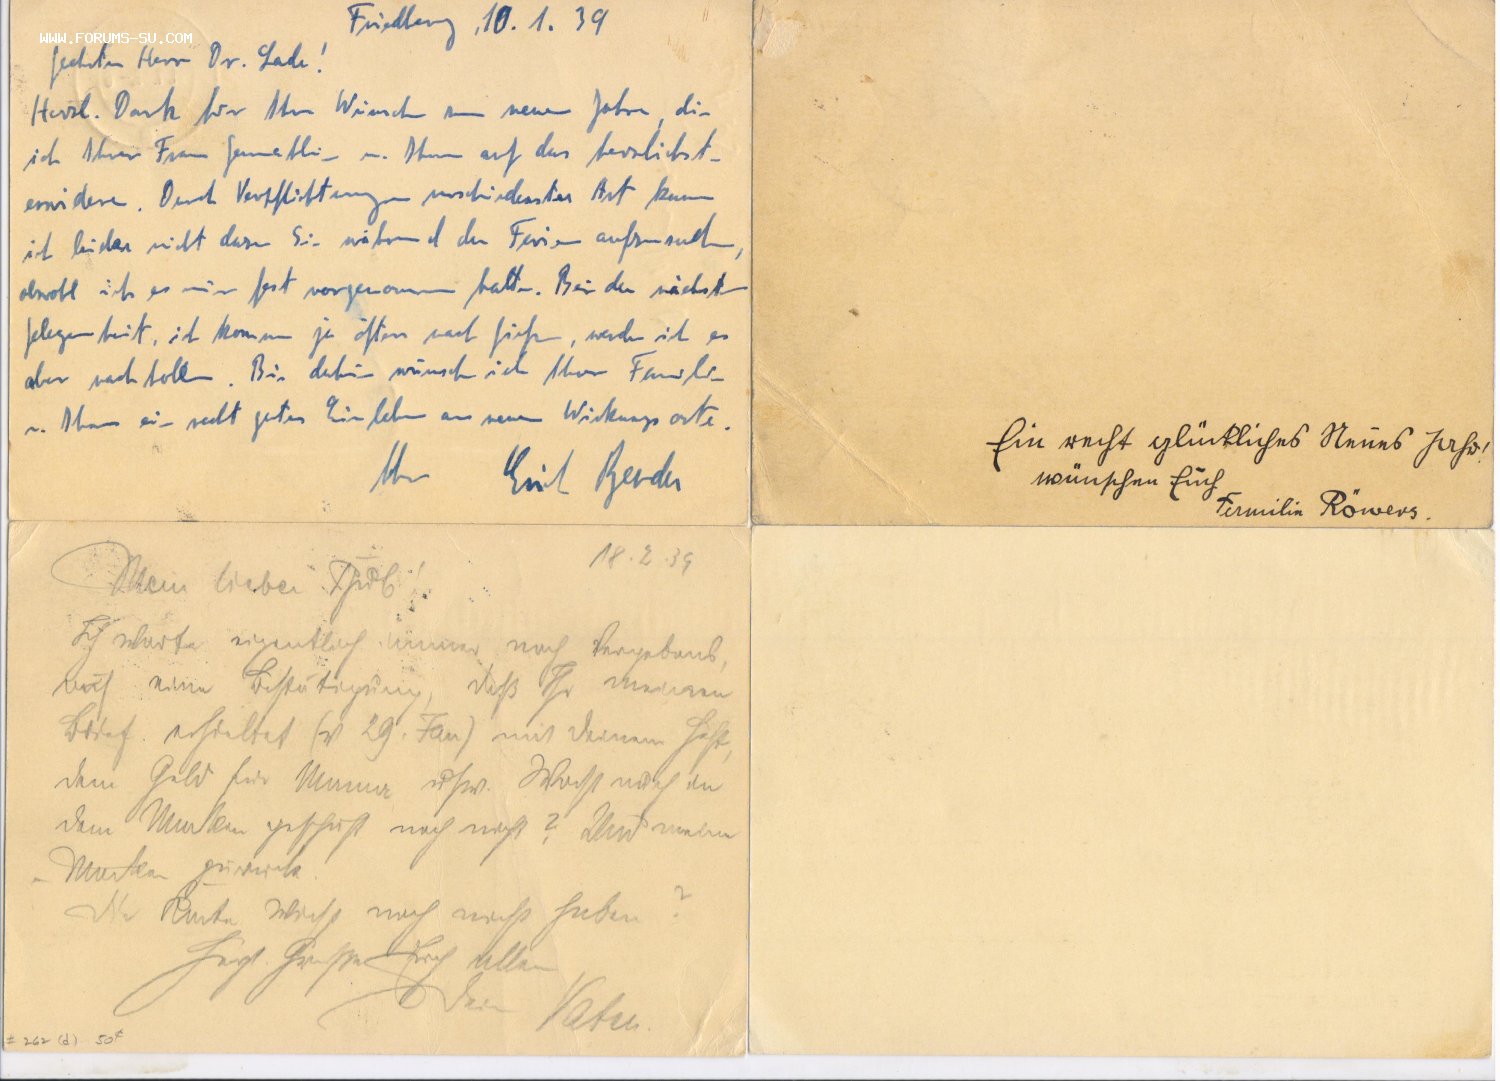 WWW.FORUMS-SU.COM
Friedberg, 10.1.39
Geehrter Herr Dr. Lade!
Herzl. Dank für Ihre Wünsche zum neuen Jahre, die
ich Ihrer Frau Gemahlin u. Ihnen auf das herzlichste
erwidere. Durch Verpflichtungen verschiedenster Art kam
ich leider nicht dazu Sie während der Ferien aufzusuchen,
obwohl ich es mir fest vorgenommen hatte. Bei der nächsten
Gelegenheit, ich komme ja öfters nach Gießen, werde ich es
aber nachholen. Bis dahin wünsche ich Ihrer Familie
u. Ihnen ein recht gutes Einleben am neuen Wirkungsorte.
Ihr Erich Bender
Ein recht glückliches Neues Jahr!
wünschen Euch
Familie Röwers.
18.2.39
Mein lieber
Ich warte eigentlich immer noch vergebens,
auf eine Bestätigung, daß Ihr meinen
Brief erhieltet (v 29. Jan) mit Deinem Heft,
dem Geld für Mama usw. Machst auch an
den Marken geschäft noch nicht? Und meine
Marken zurück.
Die Karte wirst noch nicht haben?
Herzl. Grüße Euch allen
Dein Vater.
# 262 (d) 50¢